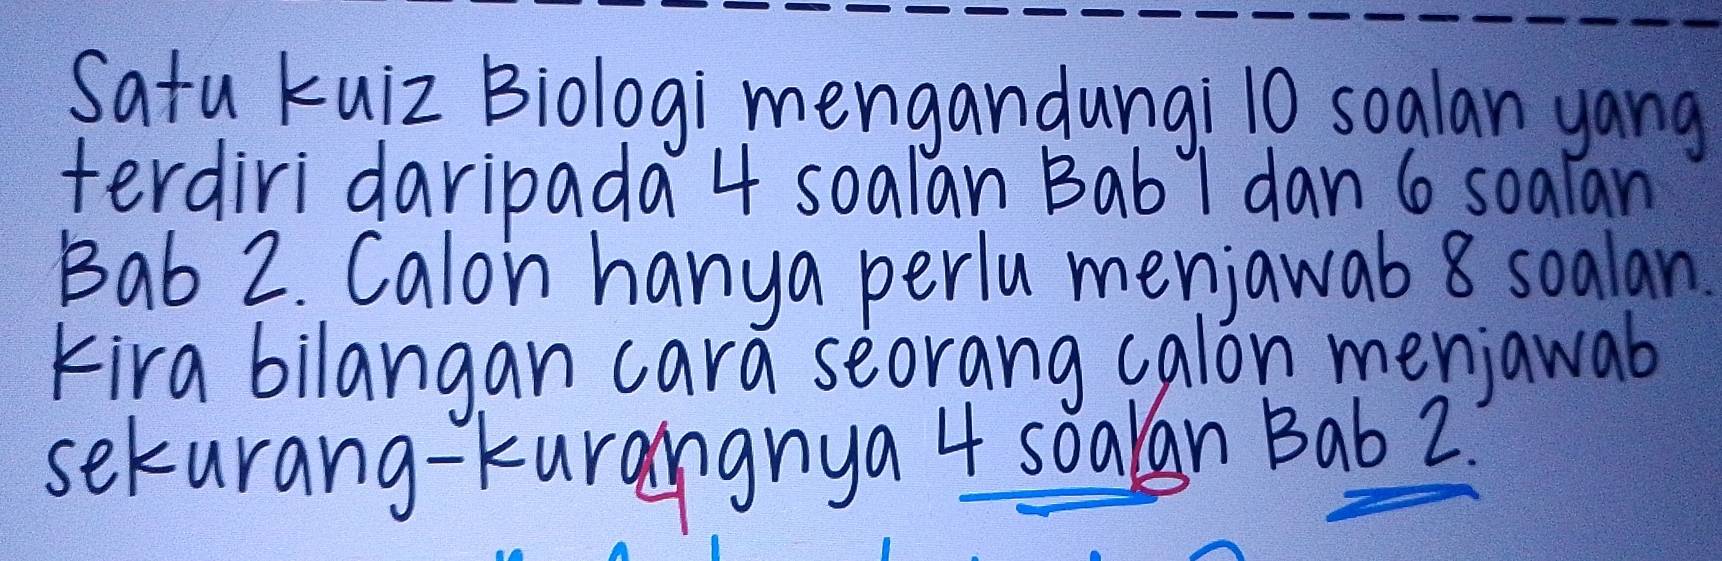 Satu kuiz Biologi mengandungi 10 soalan yang
terdiri daripada 4 soalan Bab 1 dan 6 soalan
Bab 2. Calon hanya perlu menjawab 8 soalan.
Kira bilangan cara seorang calon menjawab
sekurang-kurangnya 4 soalan Bab 2.
4 6